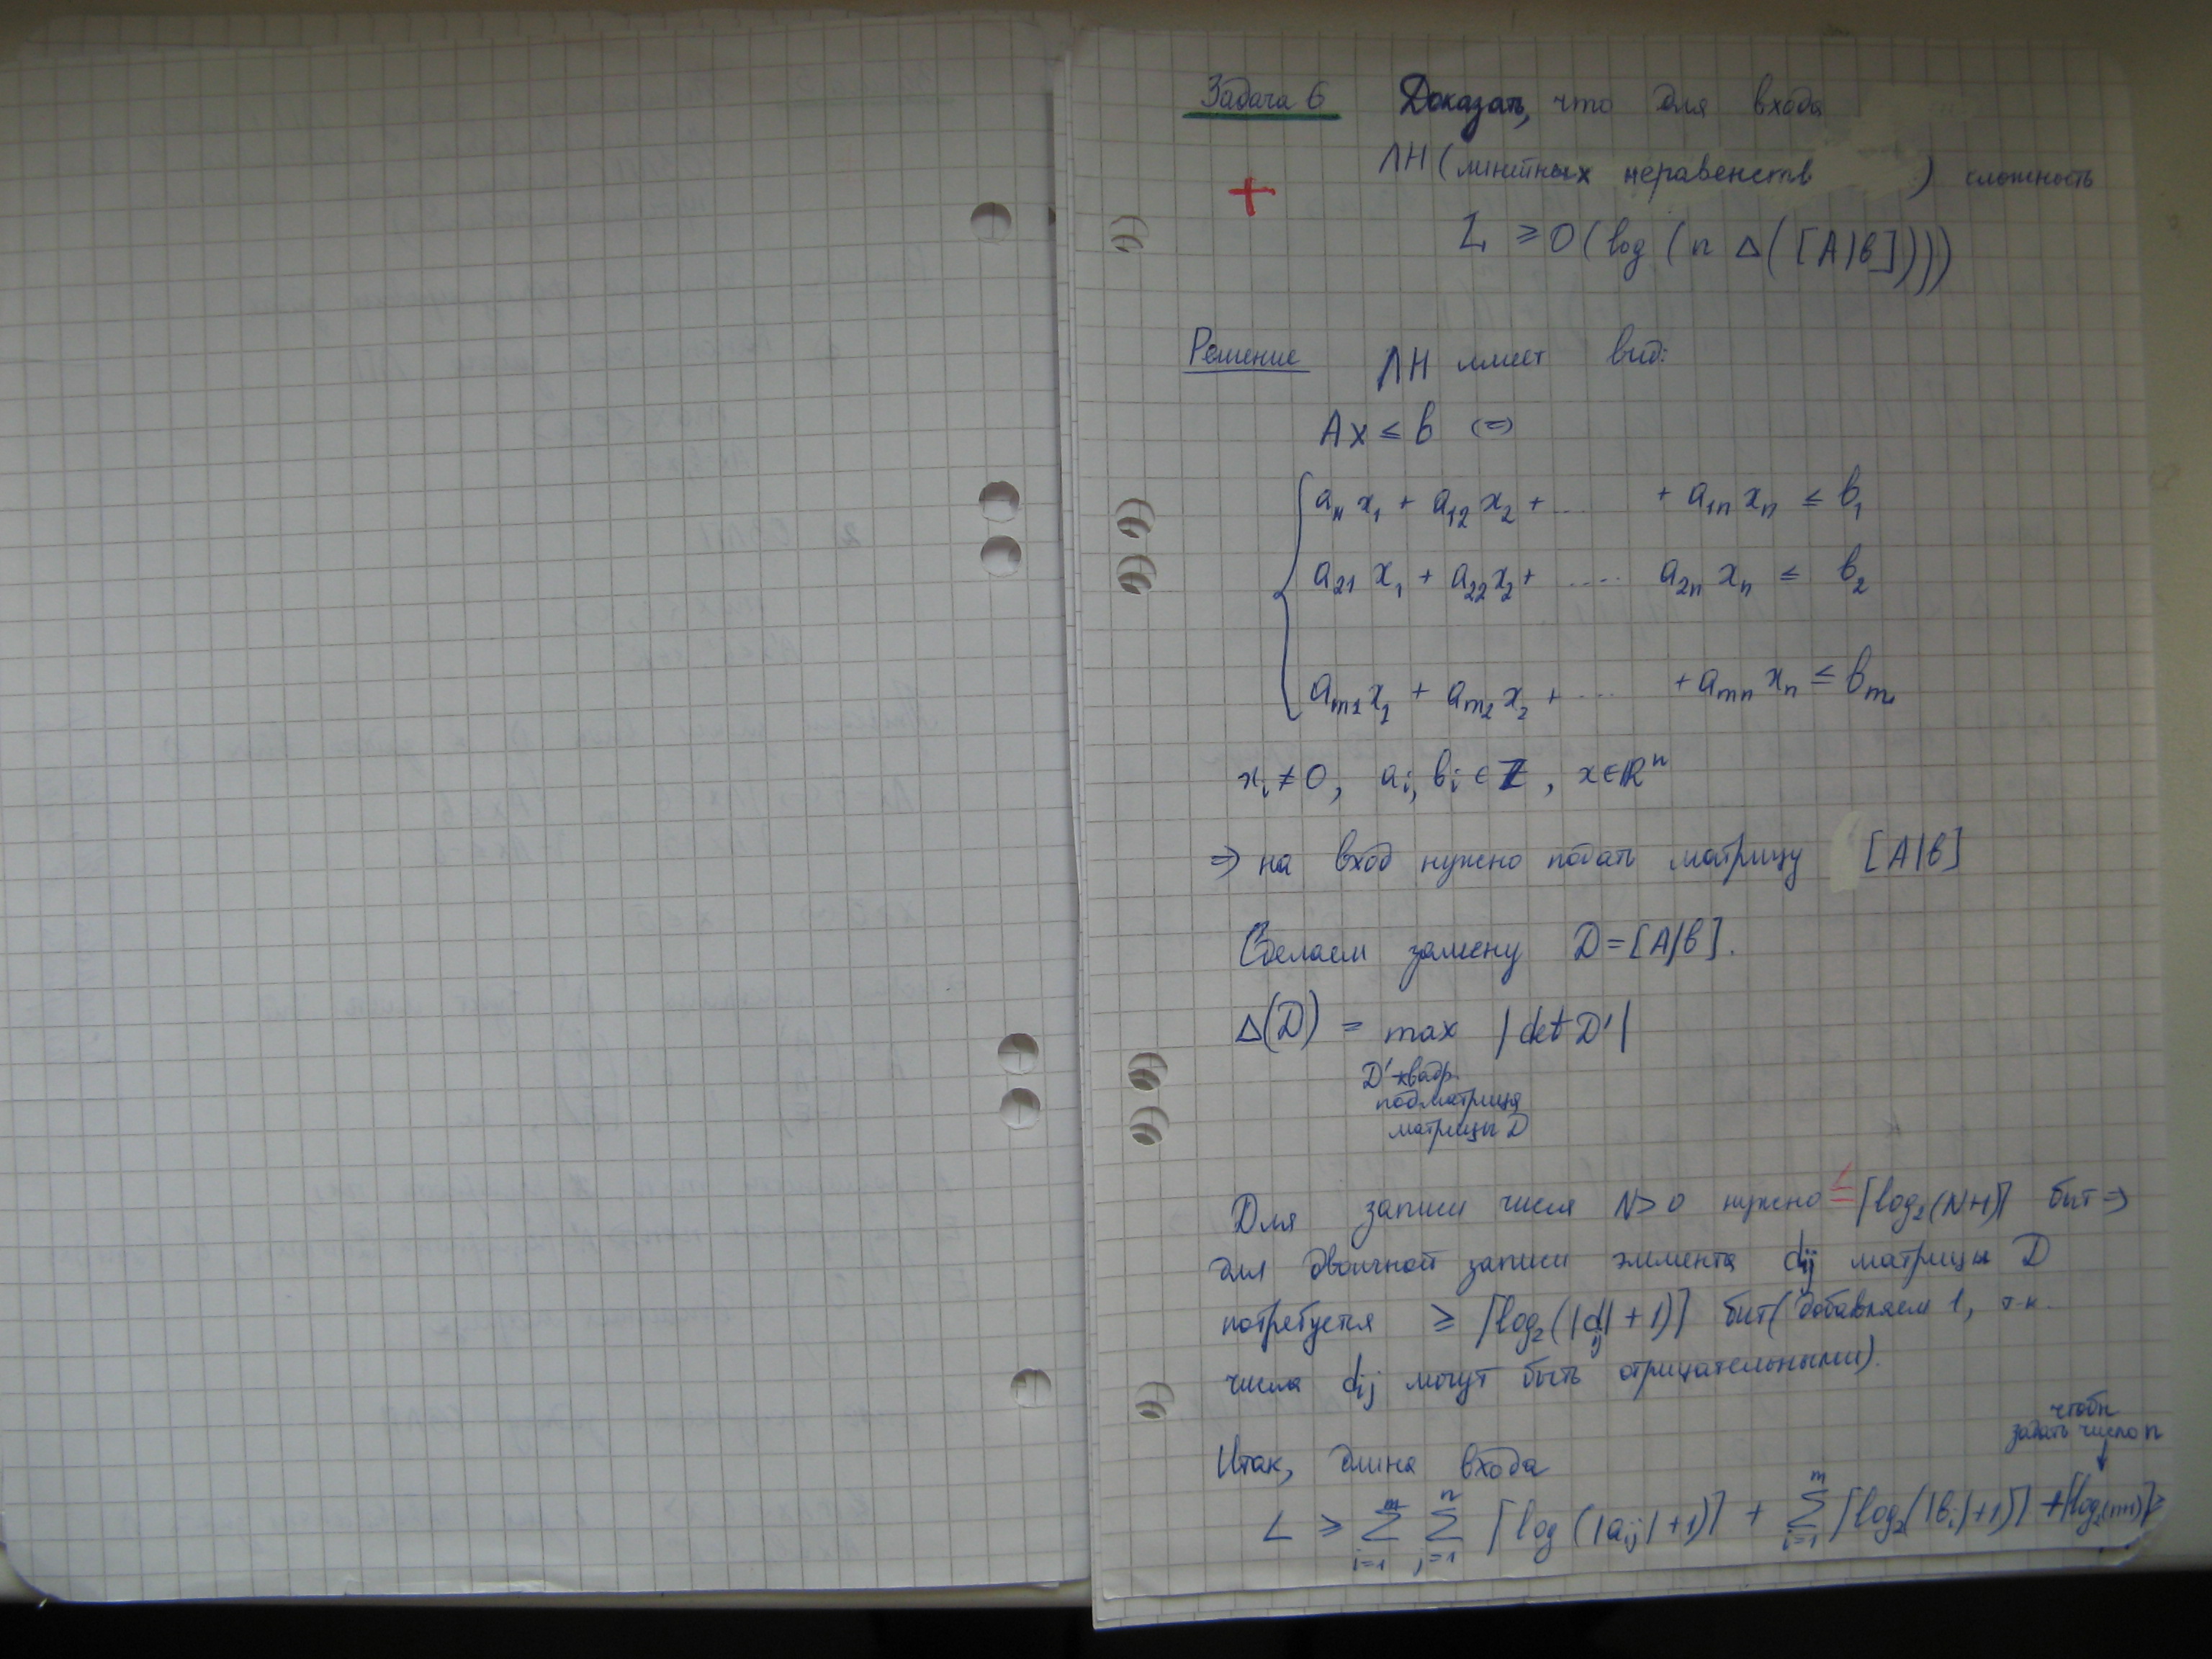 Задача 6 Доказать, что для входа
ЛН (линейных неравенств ) сложность
+
L ≥ O(log (n Δ([A|b])))
Решение ЛН имеет вид:
Ax ≤ b (=)
a₁₁x₁ + a₁₂x₂ + ... + a₁ₙxₙ ≤ b₁
a₂₁x₁ + a₂₂x₂ + .... a₂ₙxₙ ≤ b₂
aₘ₁x₁ + aₘ₂x₂ + ... + aₘₙxₙ ≤ bₘ
xᵢ ≠ 0, aᵢ, bᵢ ∈ Z, x ∈ Rⁿ
⇒ на вход нужно подать матрицу [A|b]
Сделаем замену D = [A|b].
Δ(D) = max |det D'|
D' квадр.
подматрица
матрицы D
Для записи числа N>0 нужно ⌈log₂(N+1)⌉ бит ⇒
для двоичной записи элемента dij матрицы D
потребуется ≥ ⌈log₂(|dij| + 1)⌉ бит (добавляем 1, т.к.
числа dij могут быть отрицательными).
чтобы
задать число n
Итак, длина входа
L ≥ Σᵢ₌₁ᵐ Σⱼ₌₁ⁿ ⌈log(|aij| + 1)⌉ + Σᵢ₌₁ᵐ ⌈log₂(|bᵢ| + 1)⌉ + ⌈log₂(n+1)⌉ ≥